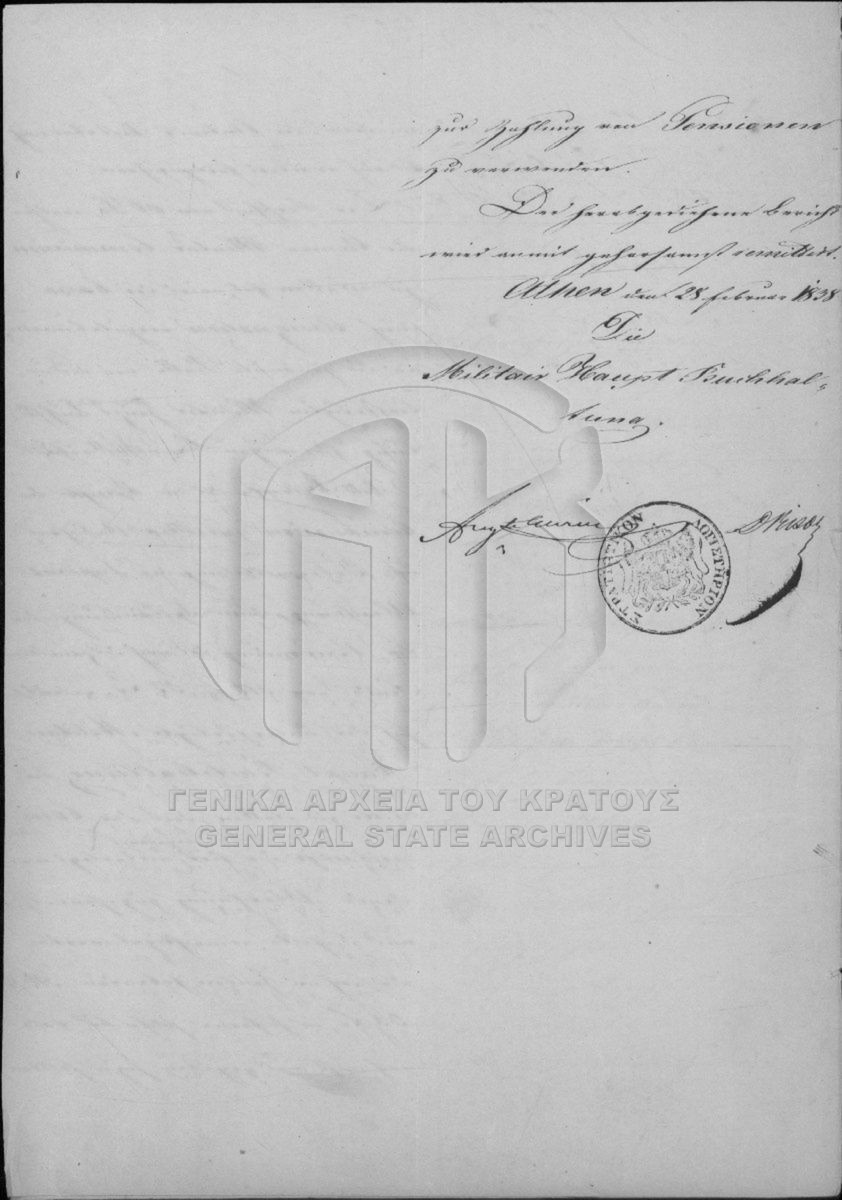 zur Zahlung von Pensionen
zu verwenden.
Der herabgediehene Bericht
wird anmit gehorsamst remittirt.
Athen den 28 Februar 1838
Die
Militair Haupt Buchhal-
tung.
ΣΤΡΑΤΙΩΤΙΚΟΝ ΛΟΓΙΣΤΗΡΙΟΝ
ΓΕΝΙΚΑ ΑΡΧΕΙΑ ΤΟΥ ΚΡΑΤΟΥΣ
GENERAL STATE ARCHIVES